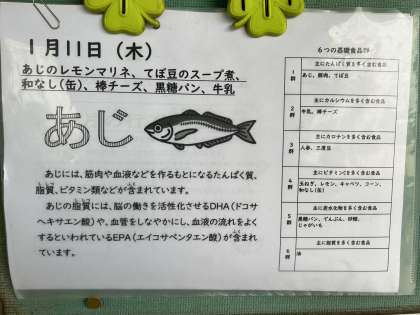 1月11日(木)
あじのレモンマリネ、てぼ豆のスープ煮、
和なし(缶)、棒チーズ、黒糖パン、牛乳
あじ
あじには、筋肉や血液などを作るもとになるたんぱく質、
脂質、ビタミン類などが含まれています。
あじの脂質には、脳の働きを活性化させるDHA(ドコサ
ヘキサエン酸)や、血管をしなやかにし、血液の流れをよく
するといわれているEPA(エイコサペンタエン酸)が含まれ
ています。
6つの基礎食品群
1群
主にたんぱく質を多く含む食品
あじ、豚肉、てぼ豆
2群
主にカルシウムを多く含む食品
牛乳、棒チーズ
3群
主にカロテンを多く含む食品
人参、三度豆
4群
主にビタミンCを多く含む食品
玉ねぎ、レモン、キャベツ、コーン、
和なし(缶)
5群
主に炭水化物を多く含む食品
黒糖パン、でんぷん、砂糖、
じゃがいも
6群
主に脂質を多く含む食品
油